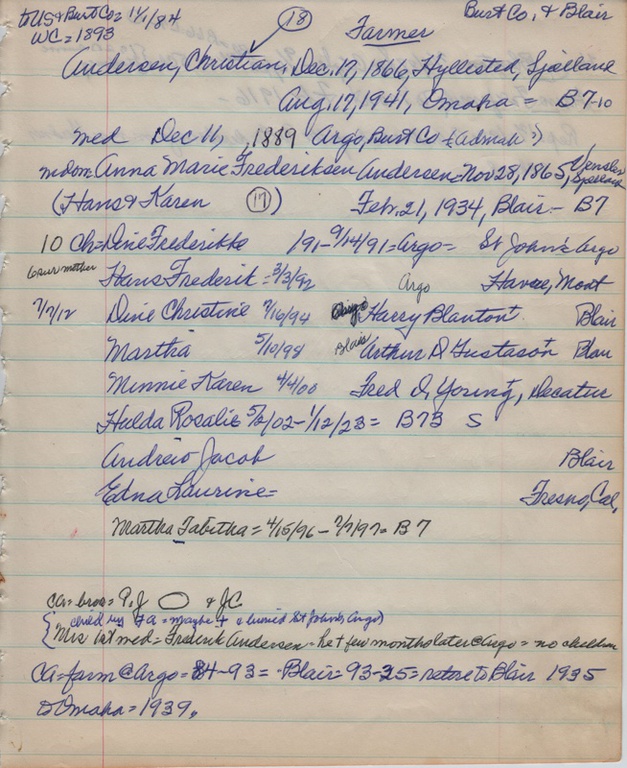 to US & Burt Co = 11/1/84 18 Burt Co, & Blair
WC = 1893 Farmer
Andersen, Christian, Dec. 17, 1866, Hyllested, Sjælland
Aug. 17, 1941, Omaha = B7-10
med Dec 11, 1889 Argo, Burt Co
Anna Marie Frederiksen Andersen = Nov 28, 1865,
(Hans & Karen 17) Feb. 21, 1934, Blair - B7
10 Ch = Dine Frederikke 191 - 9/14/91 = Argo = St John's Argo
6 surv mother Hans Frederik = 3/3/92 Argo Havre, Mont
7/7/12 Dine Christine 7/16/94 Harry Blanton Blair
Martha 5/10/98 Blair Arthur D Gustason Blair
Minnie Karen 4/4/00 Fred D, Young, Decatur
Hulda Rosalie 5/2/02 - 1/12/23 = B73 S
Andrew Jacob Blair
Edna Laurine = Fresno, Cal,
Martha Tabitha = 4/15/96 - 7/7/97 = B7
CA = bros = P. J & JC
buried St John's, Argo)
Mrs 1st med = Frederik Andersen - he + few months later @ Argo = no children
CA = farm @ Argo = 84-93 = Blair = 93-35 = retire to Blair 1935
to Omaha = 1939.